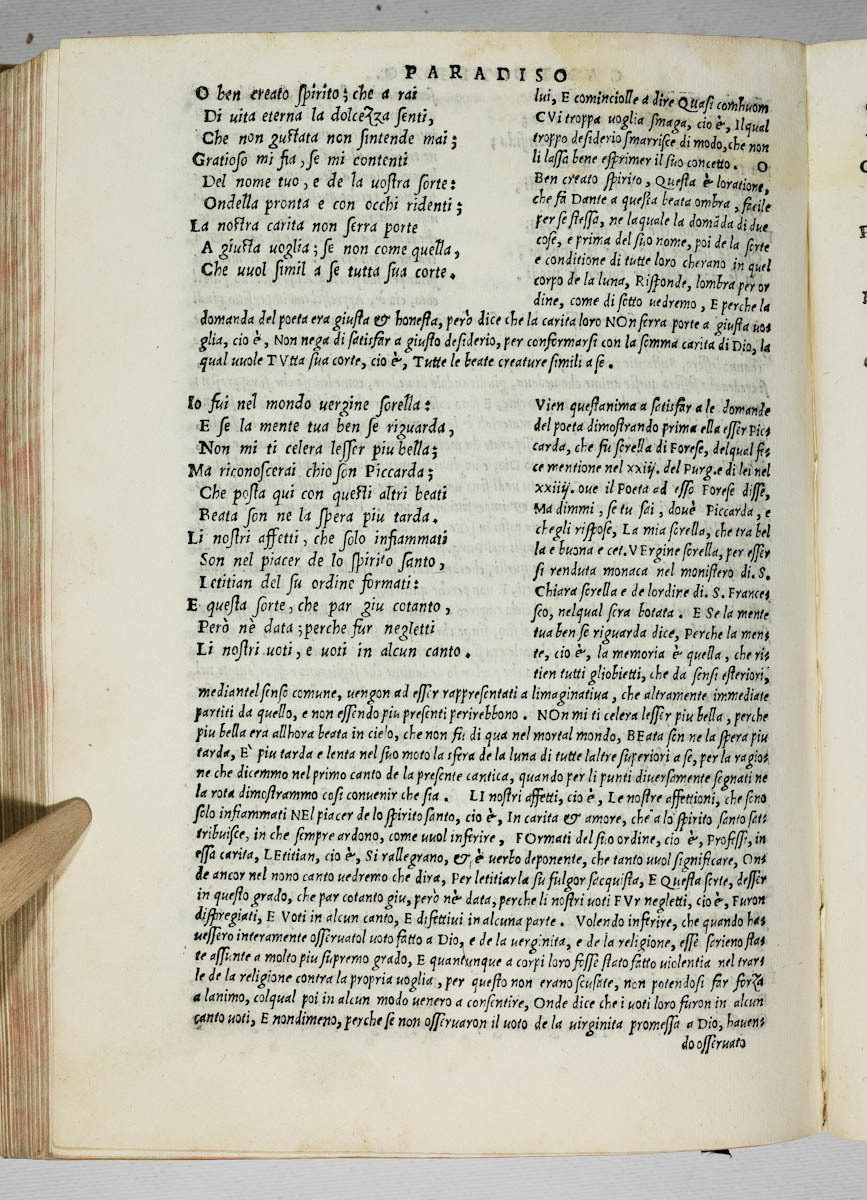 PARADISO
O ben creato spirito; che a rai
Di uita eterna la dolcezza senti,
Che non gustata non sintende mai;
Gratioso mi fia, se mi contenti
Del nome tuo, e de la uostra sorte:
Ondella pronta e con occhi ridenti;
La nostra carita non serra porte
A giusta uoglia; se non come quella,
Che uuol simil a se tutta sua corte.
lui, E cominciolle a dire Quasi comhuom
CVi troppa uoglia smaga, cio è, Ilqual
troppo desiderio smarrisce di modo, che non
li lassa bene esprimer il suo concetto. O
Ben creato spirito, Questa è loratione,
che fa Dante a questa beata ombra, facile
per se stessa, ne laquale la domāda di due
cose, e prima del suo nome, poi de la sorte
e conditione di tutte loro cherano in quel
corpo de la luna, Risponde, lombra per or
dine, come di sotto uedremo, E perche la
domanda del poeta era giusta & honesta, però dice che la carita loro NOn serra porte a giusta uo=
glia, cio è, Non nega di satisfar a giusto desiderio, per conformarsi con la somma carita di Dio, la
qual uuole TVtta sua corte, cio è, Tutte le beate creature simili a se.
Io fui nel mondo uergine sorella:
E se la mente tua ben se riguarda,
Non mi ti celera lesser piu bella;
Ma riconoscerai chio son Piccarda;
Che posta qui con questi altri beati
Beata son ne la spera piu tarda.
Li nostri affetti, che solo infiammati
Son nel piacer de lo spirito santo,
Letitian del su ordine formati:
E questa sorte, che par giu cotanto,
Però nè data; perche fur negletti
Li nostri uoti, e uoti in alcun canto.
Vien questanima a satisfar a le domande
del poeta dimostrando prima ella esser Pic=
carda, che fu sorella di Forese, delqual fe=
ce mentione nel xxiij. del Purg. e di lei nel
xxiiij. oue il Poeta ad esso Forese disse,
Ma dimmi, se tu sai, douè Piccarda, e
chegli rispose, La mia sorella, che tra bel
la e buona e cet. VErgine sorella, per esser
si renduta monaca nel monistero di. S.
Chiara sorella e de lordire di. S. Frances
sco, nelqual sera botata. E Se la mente
tua ben se riguarda dice, Perche la men=
te, cio è, la memoria è quella, che ri=
tien tutti gliobietti, che da sensi esteriori,
mediantel senso comune, uengon ad esser rappresentati a limaginatiua, che altramente immediate
partiti da quello, e non essendo piu presenti perirebbono. NOn mi ti celera lesser piu bella, perche
piu bella era allhora beata in cielo, che non fu di qua nel mortal mondo, BEata son ne la spera piu
tarda, E' piu tarda e lenta nel suo moto la sfera de la luna di tutte laltre superiori a se, per la ragio=
ne che dicemmo nel primo canto de la presente cantica, quando per li punti diuersamente segnati ne
la rota dimostrammo cosi conuenir che sia. LI nostri affetti, cio è, Le nostre affettioni, che sono
solo infiammati NEl piacer de lo spirito santo, cio è, In carita & amore, che a lo spirito santo sat=
tribuisce, in che sempre ardono, come uuol inferire, FOrmati del suo ordine, cio è, Professi, in
essa carita, LEtitian, cio è, Si rallegrano, & è uerbo deponente, che tanto uuol significare, On=
de ancor nel nono canto uedremo che dira, Per letitiar la su fulgor sacquista, E Questa sorte, desser
in questo grado, che par cotanto giu, però nè data, perche li nostri uoti FVr negletti, cio è, Furon
dispregiati, E Voti in alcun canto, E difettiui in alcuna parte. Volendo inferire, che quando ha=
uessero interamente osseruatol uoto fatto a Dio, e de la uerginita, e de la religione, esse serieno sta=
te assunte a molto piu supremo grado, E quantunque a corpi loro fosse stato fatto uiolentia nel trar=
le de la religione contra la propria uoglia, per questo non erano scusate, non potendosi far forza
a lanimo, colqual poi in alcun modo uenero a consentire, Onde dice che i uoti loro furon in alcun
canto uoti, E nondimeno, perche se non osseruaron il uoto de la uirginita promessa a Dio, hauen=
do osseruato